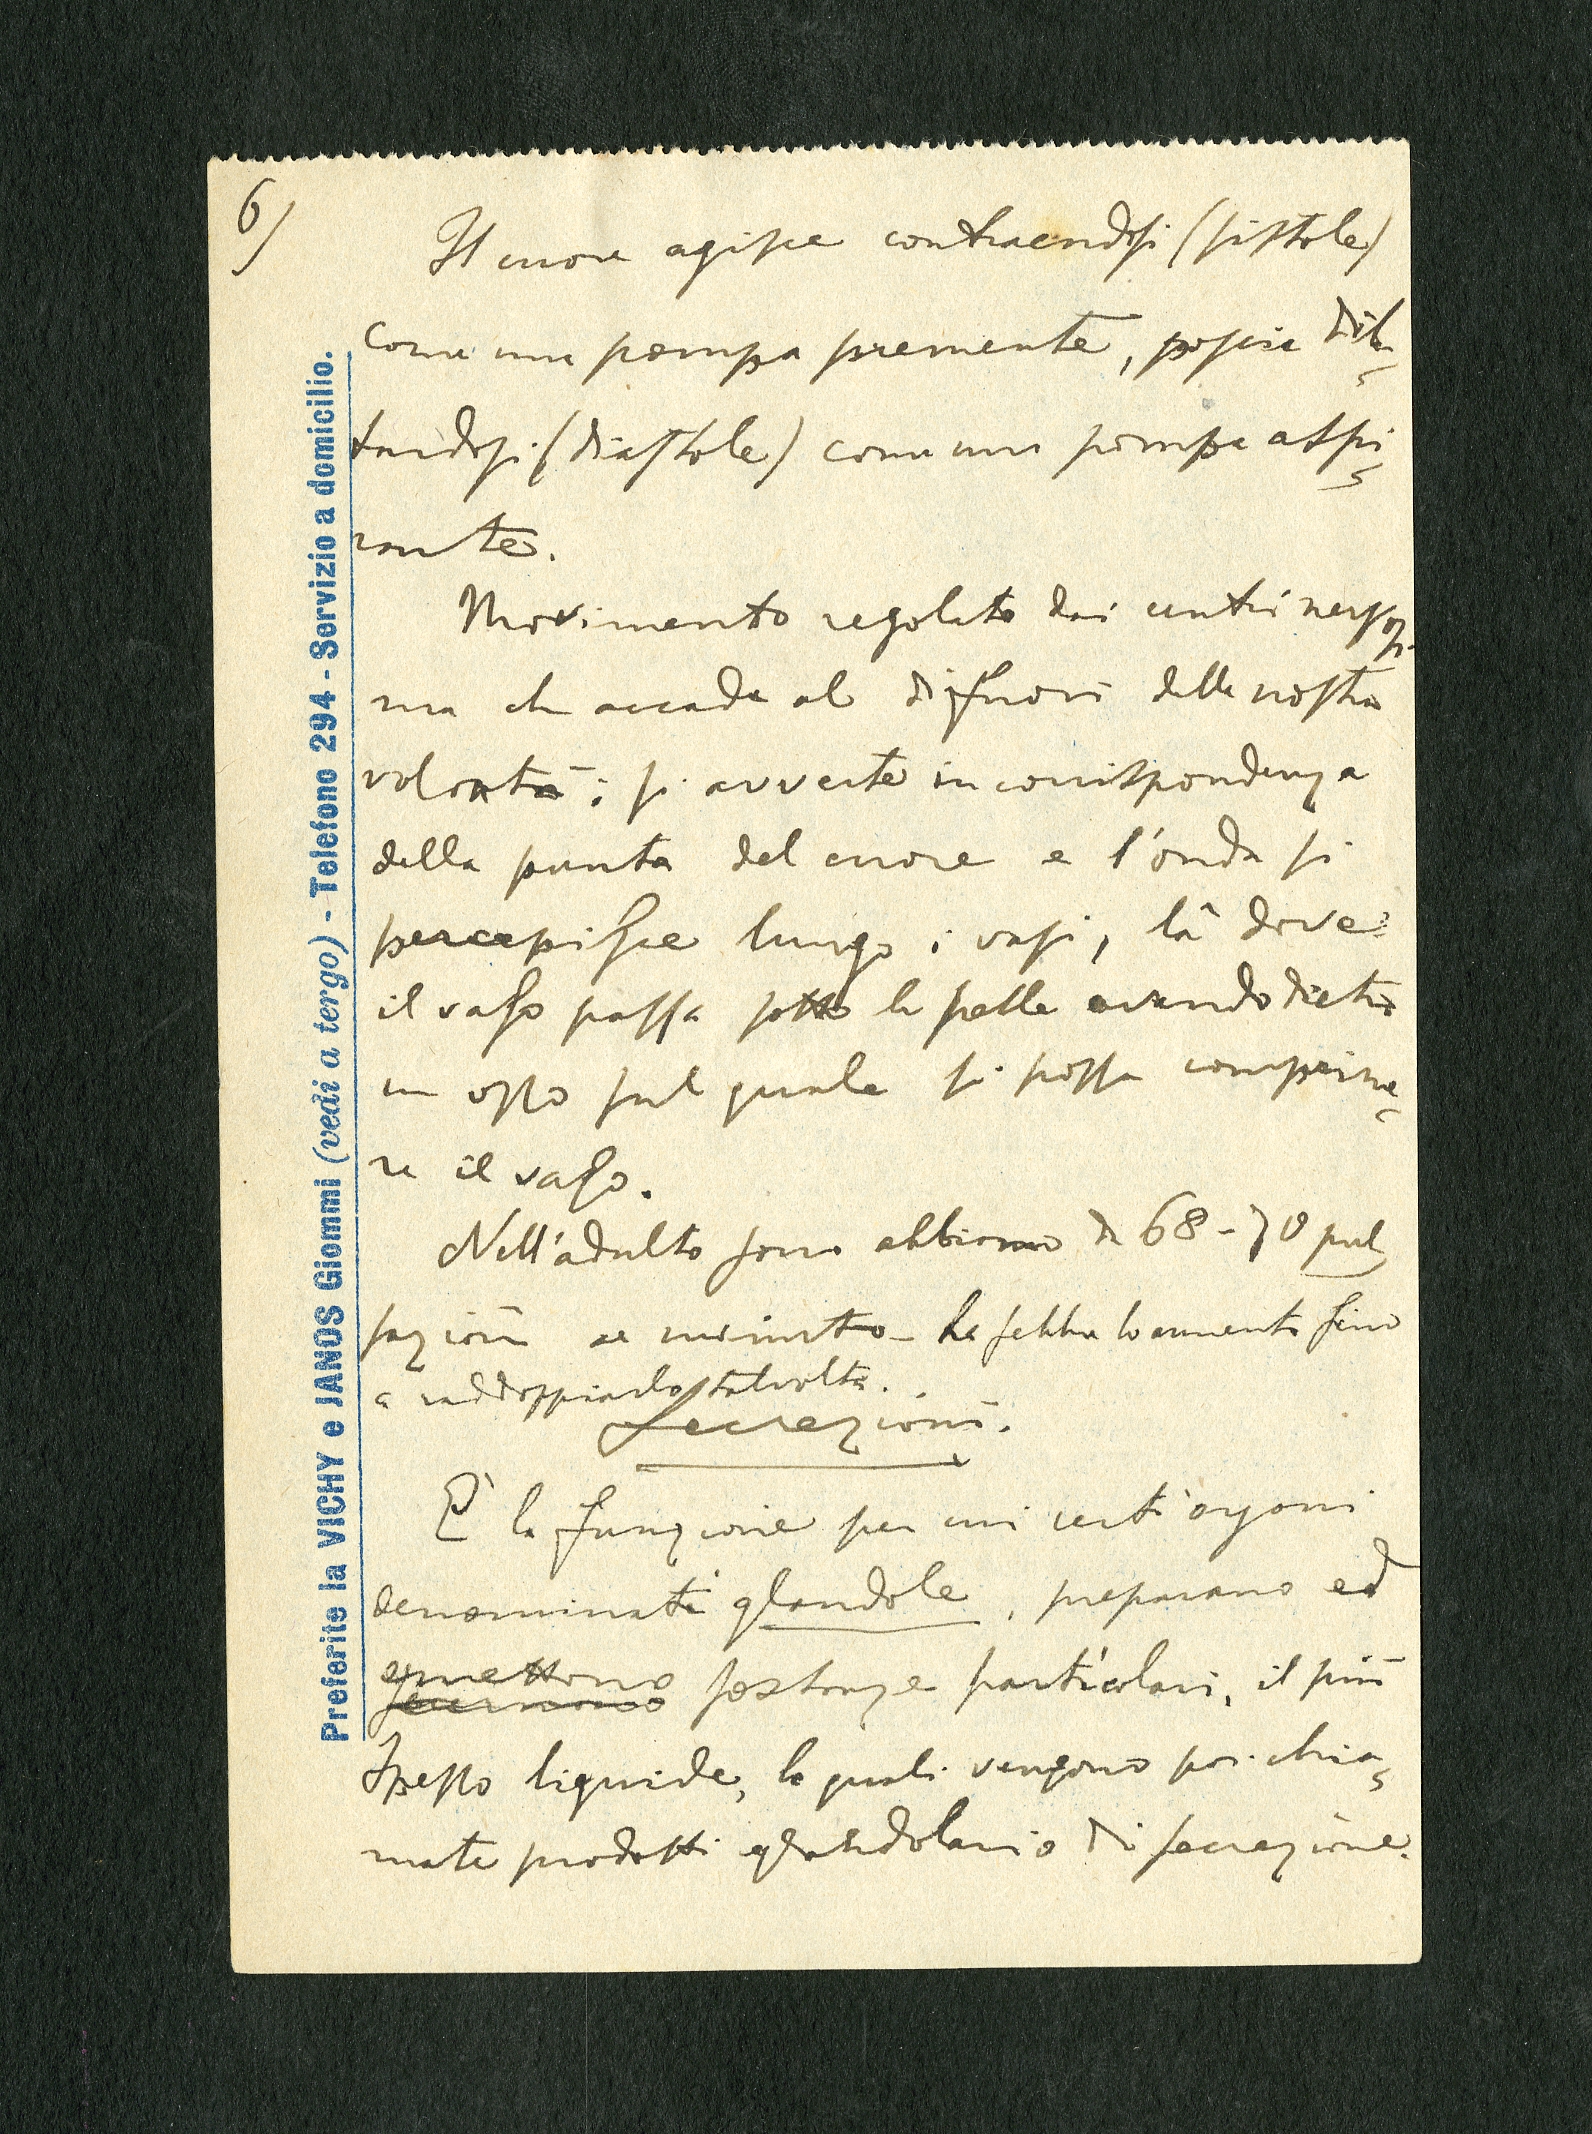 6)
Il cuore agisce contraendosi (sistole)
come una pompa premente, poscia dila-
tandosi (diastole) come una pompa aspi-
rante.
Movimento regolato dai centri nervosi
ma che accade al difuori della nostra
volontà; si avverte in corrispondenza
della punta del cuore e l'onda si
percepisce lungo i vasi, là dove
il vaso passa sotto la pelle avendo dietro
un osso sul quale si possa comprime-
re il vaso.
Nell'adulto sano abbiamo da 68-70 pul
sazioni al minuto - La febbre lo aumenta fino
a raddoppiarlo talvolta.
Secrezioni.
È la funzione per cui certi organi
denominati glandole, preparano ed
emettono
secernono sostanze particolari, il più
spesso liquide, le quali vengono poi chia-
mate prodotti glandolari o di secrezione.
Preferite la VICHY e JANOS Giommi (vedi a tergo) - Telefono 294 - Servizio a domicilio.